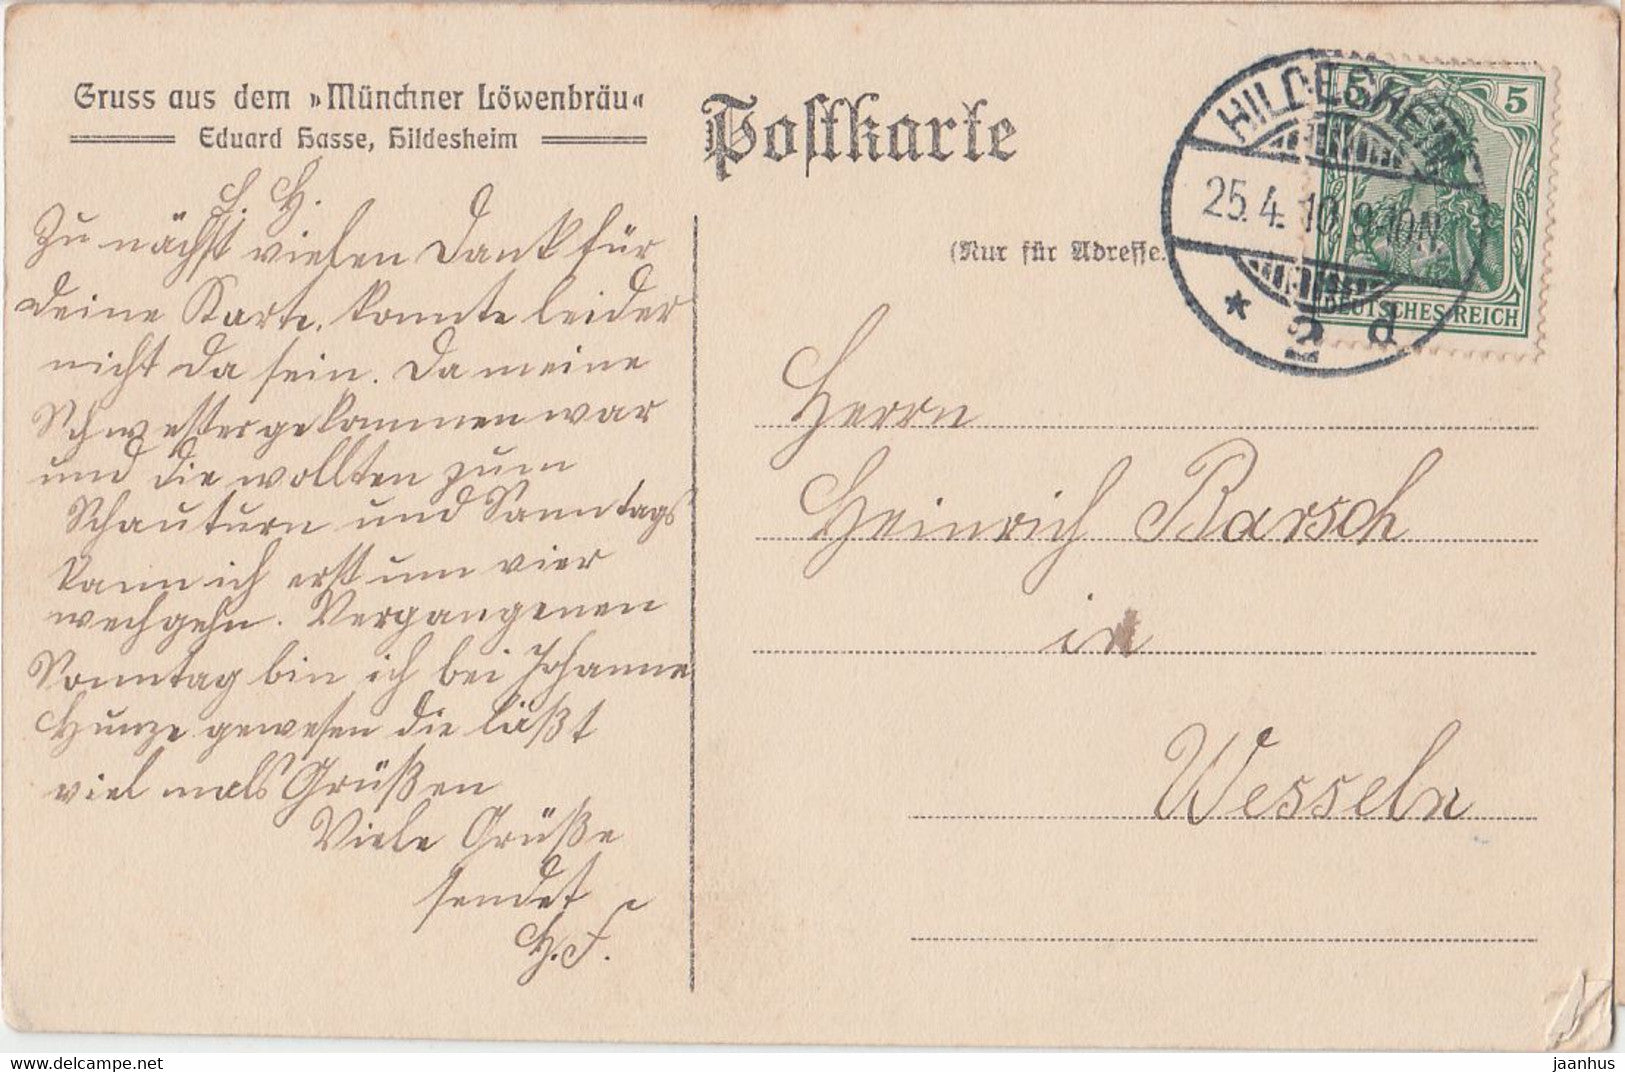 Gruss aus dem »Münchner Löwenbräu«
Eduard Hasse, Hildesheim
L. H.
Zu nächst vielen Dank für
deine Karte, konnte leider
nicht da sein. Da meine
Schwester gekommen war
und die wollten zum
Schauturn und Sonntags
kann ich erst um vier
wechgehn. Vergangenen
Sonntag bin ich bei Johanne
Hunze gewesen die läßt
viel mals Grüßen
Viele Grüße
sendet
H. F.
Postkarte
(Nur für Adresse.
HILDESHEIM
25.4.10.9-10N.
* 2 d
5 5
DEUTSCHES REICH
Herrn
Heinrich Barsch
in
Wesseln
jaanhus
www.delcampe.net